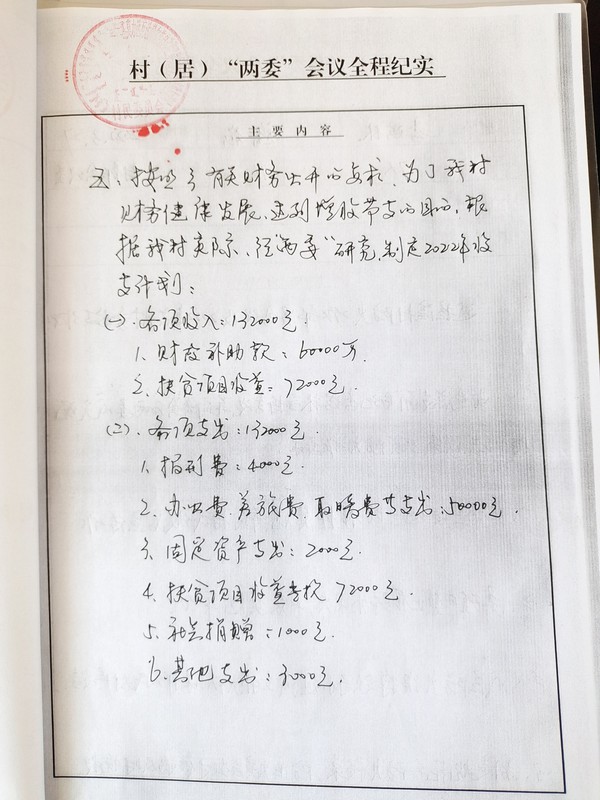 村（居）“两委”会议全程纪实
主要内容
五、按照县有关财务公开的要求，为了我村
财务健康发展，达到增收节支的目的，根
据我村实际，经“两委”研究，制定2022年收
支计划：
(一)、各项收入：132000元。
1、财政补助款：60000万.
2、扶贫项目收益：72000元.
(二)、各项支出：132000元.
1、报刊费：4000元.
2、办公费、差旅费、取暖费等支出：50000元.
3、固定资产支出：2000元.
4、扶贫项目收益专权 72000元.
5、社会捐赠：1000元.
6、其他支出：3000元.